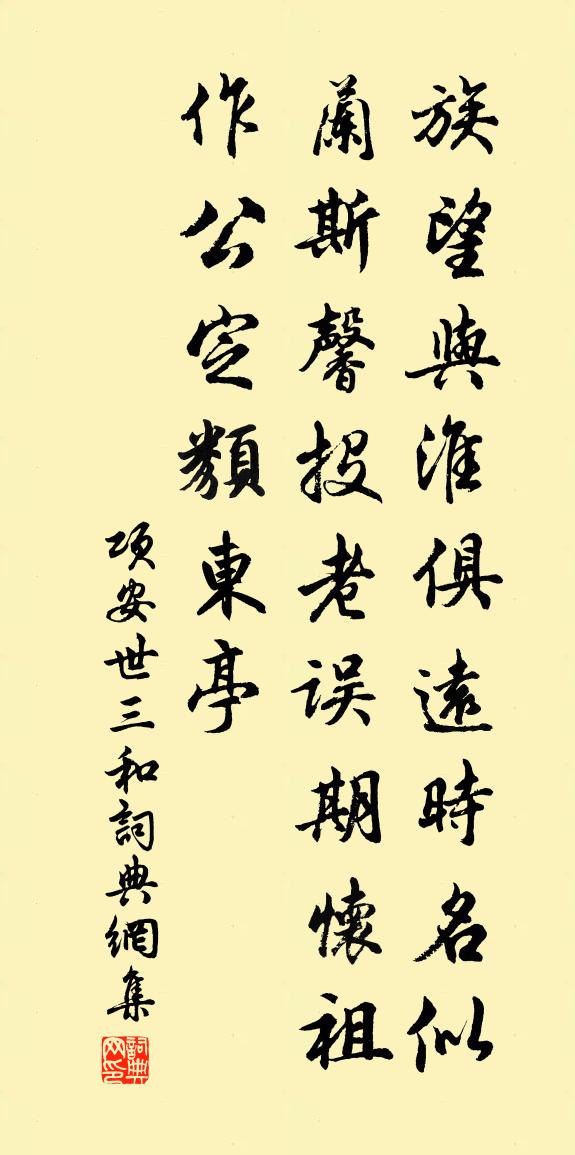 族望與淮俱遠時名似
蘭斯馨投老誤期懷祖
作公定類東亭
項安世三和詞典網集
詞典网印